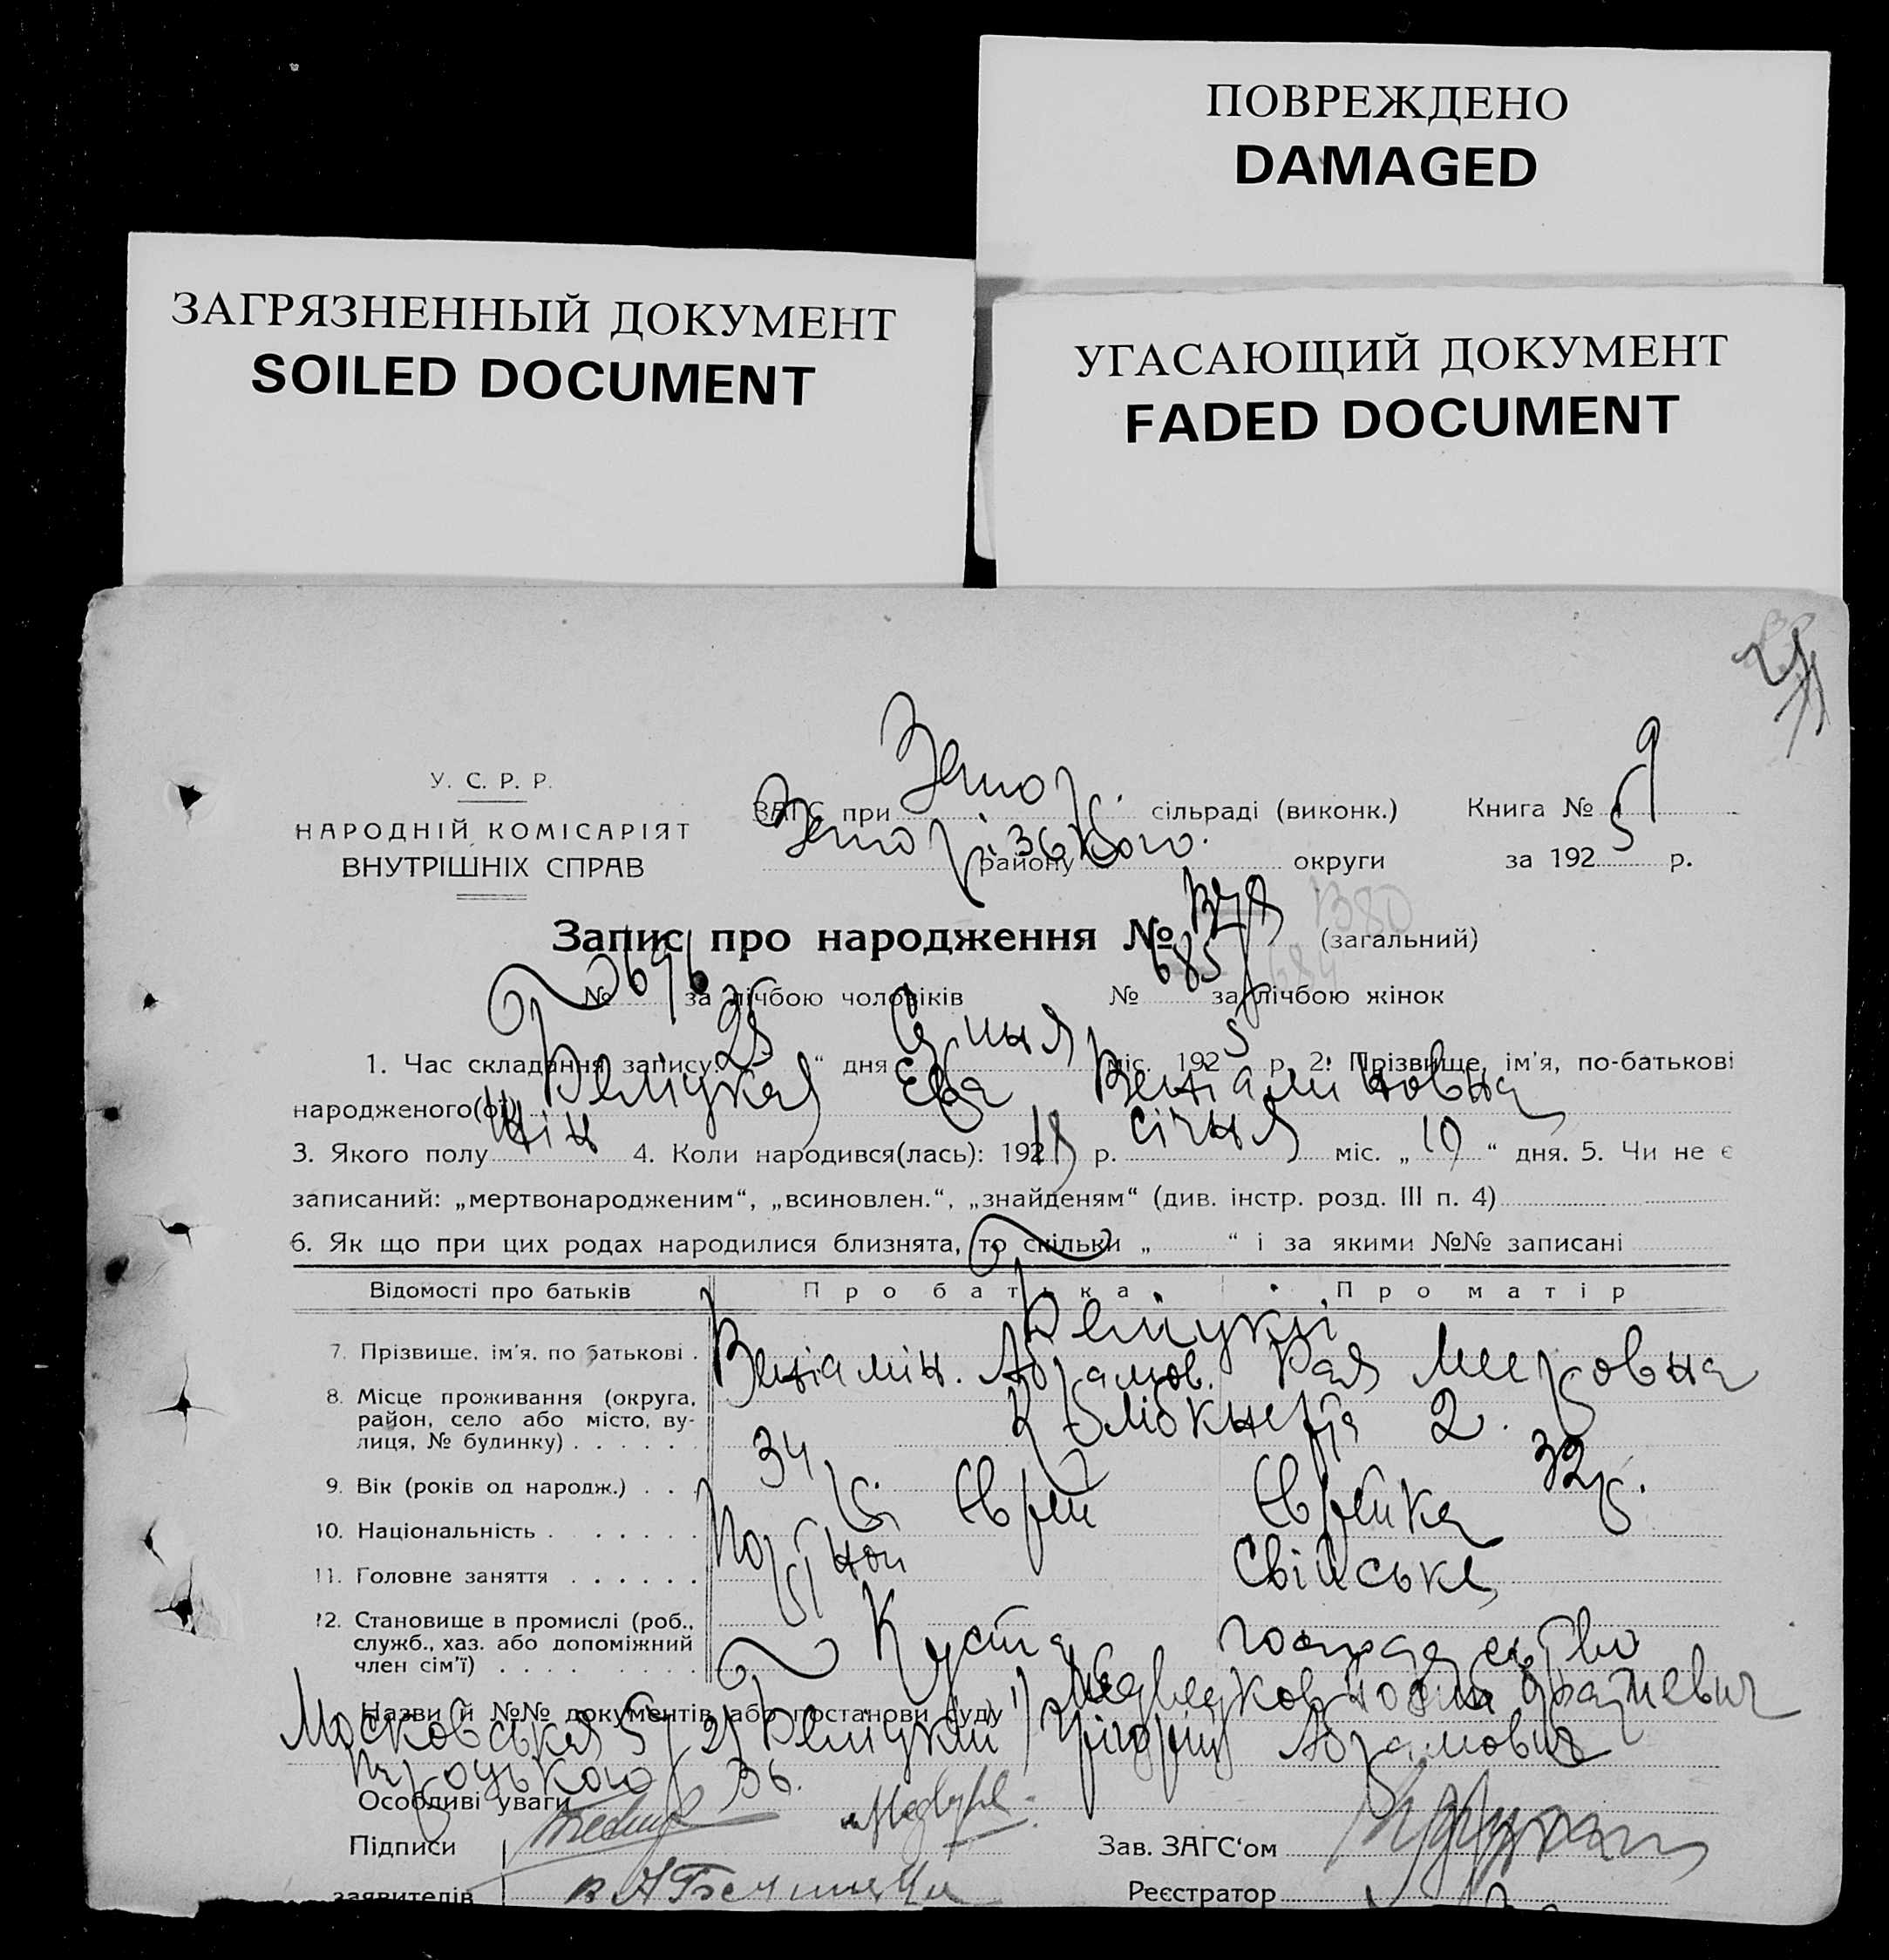 ПОВРЕЖДЕНО
DAMAGED
ЗАГРЯЗНЕННЫЙ ДОКУМЕНТ
SOILED DOCUMENT
УГАСАЮЩИЙ ДОКУМЕНТ
FADED DOCUMENT
У. С. Р. Р.
НАРОДНІЙ КОМІСАРІЯТ
ВНУТРІШНІХ СПРАВ
ЗАГС при Запор. сільраді (виконк.) Книга № 9
Запорізького району округи за 1925 р.
Запис про народження № (загальний) 1380
№ 696 за лічбою чоловіків № 685 за лічбою жінок 684
1. Час складання запису: 25 “ дня міс. 1925 р. 2. Прізвище, ім'я, по-батькові
народженого(ої) Беліцкая Ева Веніаминовна
3. Якого полу жін 4. Коли народився(лась): 192 р. січня міс. „ 19 “ дня. 5. Чи не є
записаний: „мертвонародженим“, „всиновлен.“, „знайденям“ (див. інстр. розд. III п. 4)
6. Як що при цих родах народилися близнята, то скільки „ “ і за якими №№ записані
Відомості про батьків Про батька Про матір
Беліцкі
7. Прізвище, ім'я, по батькові . Веніамін. Абрамов. Рая Мееровна
8. Місце проживання (округа,
район, село або місто, ву-
лиця, № будинку) . . . . . . К. Лібкнехта 2.
9. Вік (років од народж.) . . . 34 р. 32 р.
10. Національність . . . . . . Єврей Єврейка
11. Головне заняття . . . . . . Портной Свійське
12. Становище в промислі (роб.,
служб., хаз. або допоміжний
член сім'ї) . . . . . . . . Кустар господарство
Назви й №№ документів або постанови суду 1) Медведков
Московська 5, 2) Беліцкий Грігорій Абрамович
36.
Особливі уваги
Підписи
Зав. ЗАГС‘ом
заявителів
Реєстратор